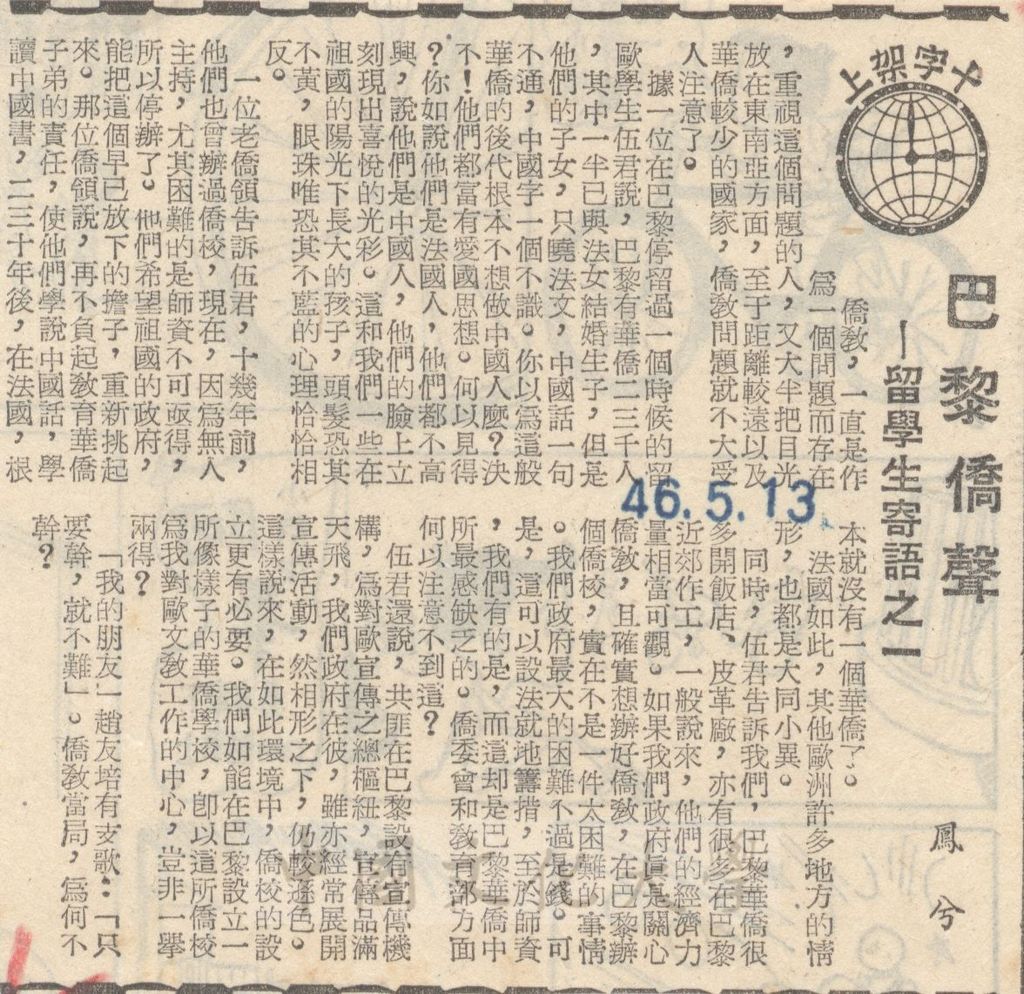 十字架上
巴黎僑聲
—留學生寄語之一
鳳兮
僑敎,一直是作
爲一個問題而存在
,重視這個問題的人,又大半把目光
放在東南亞方面,至于距離較遠以及
華僑較少的國家,僑敎問題就不大受
人注意了。
據一位在巴黎停留過一個時候的留
歐學生伍君說,巴黎有華僑二三千人
,其中一半已與法女結婚生子,但是
他們的子女,只曉法文,中國話一句
不通,中國字一個不識。你以爲這般
華僑的後代根本不想做中國人麼?決
不!他們都富有愛國思想。何以見得
?你如說他們是法國人,他們都不高
興,說他們是中國人,他們的臉上立
刻現出喜悅的光彩。這和我們一些在
祖國的陽光下長大的孩子,頭髮恐其
不黃,眼珠唯恐其不藍的心理恰恰相
反。
一位老僑領告訴伍君,十幾年前,
他們也曾辦過僑校,現在,因爲無人
主持,尤其困難的是師資不可亟得,
所以停辦了。他們希望祖國的政府,
能把這個早已放下的擔子,重新挑起
來。那位僑領說,再不負起敎育華僑
子弟的責任,使他們學說中國話,學
讀中國書,二三十年後,在法國,根
46.5.13.
本就沒有一個華僑了。
法國如此,其他歐洲許多地方的情
形,也都是大同小異。
同時,伍君告訴我們,巴黎華僑很
多開飯店、皮革廠,亦有很多在巴黎
近郊作工,一般說來,他們的經濟力
量相當可觀。如果我們政府眞是關心
僑敎,且確實想辦好僑敎,在巴黎辦
個僑校,實在不是一件太困難的事情
。我們政府最大的困難不過是錢。可
是,這可以設法就地籌措,至於師資
,我們有的是,而這却是巴黎華僑中
所最感缺乏的。僑委會和敎育部方面
何以注意不到這?
伍君還說,共匪在巴黎設有宣傳機
構,爲對歐宣傳之總樞紐,宣傳品滿
天飛,我們政府在彼,雖亦經常展開
宣傳活動,然相形之下,仍較遜色。
這樣說來,在如此環境中,僑校的設
立更有必要。我們如能在巴黎設立一
所像樣子的華僑學校,卽以這所僑校
爲我對歐文敎工作的中心,豈非一擧
兩得?
「我的朋友」趙友培有支歌:「只
要幹,就不難」。僑敎當局,爲何不
幹?